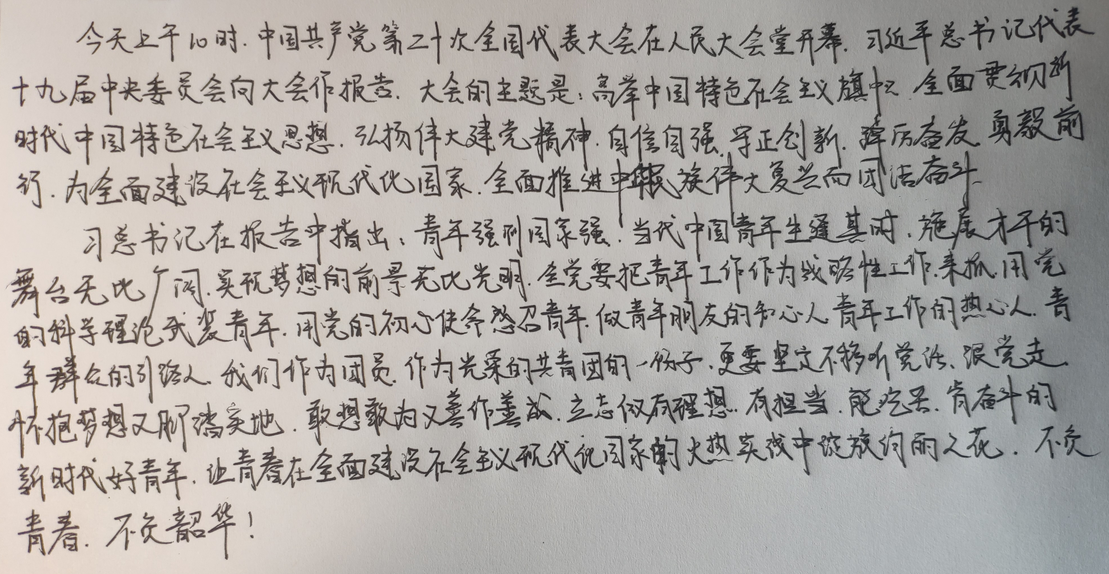 今天上午10时.中国共产党第二十次全国代表大会在人民大会堂开幕.习近平总书记代表
十九届中央委员会向大会作报告.大会的主题是:高举中国特色社会主义旗帜.全面贯彻新
时代中国特色社会主义思想.弘扬伟大建党精神.自信自强.守正创新.踔厉奋发.勇毅前
行.为全面建设社会主义现代化国家.全面推进中华民族伟大复兴而团结奋斗.
习总书记在报告中指出:青年强则国家强.当代中国青年生逢其时.施展才干的
舞台无比广阔.实现梦想的前景无比光明.全党要把青年工作作为战略性工作.来抓.用党
的科学理论武装青年.用党的初心使命感召青年.做青年朋友的知心人青年工作的热心人.青
年群众的引路人.我们作为团员.作为光荣的共青团的一份子.更要坚定不移听党话、跟党走.
怀抱梦想又脚踏实地.敢想敢为又善作善成.立志做有理想.有担当.能吃苦.肯奋斗的
新时代好青年.让青春在全面建设社会主义现代化国家的火热实践中绽放绚丽之花.不负
青春.不负韶华!